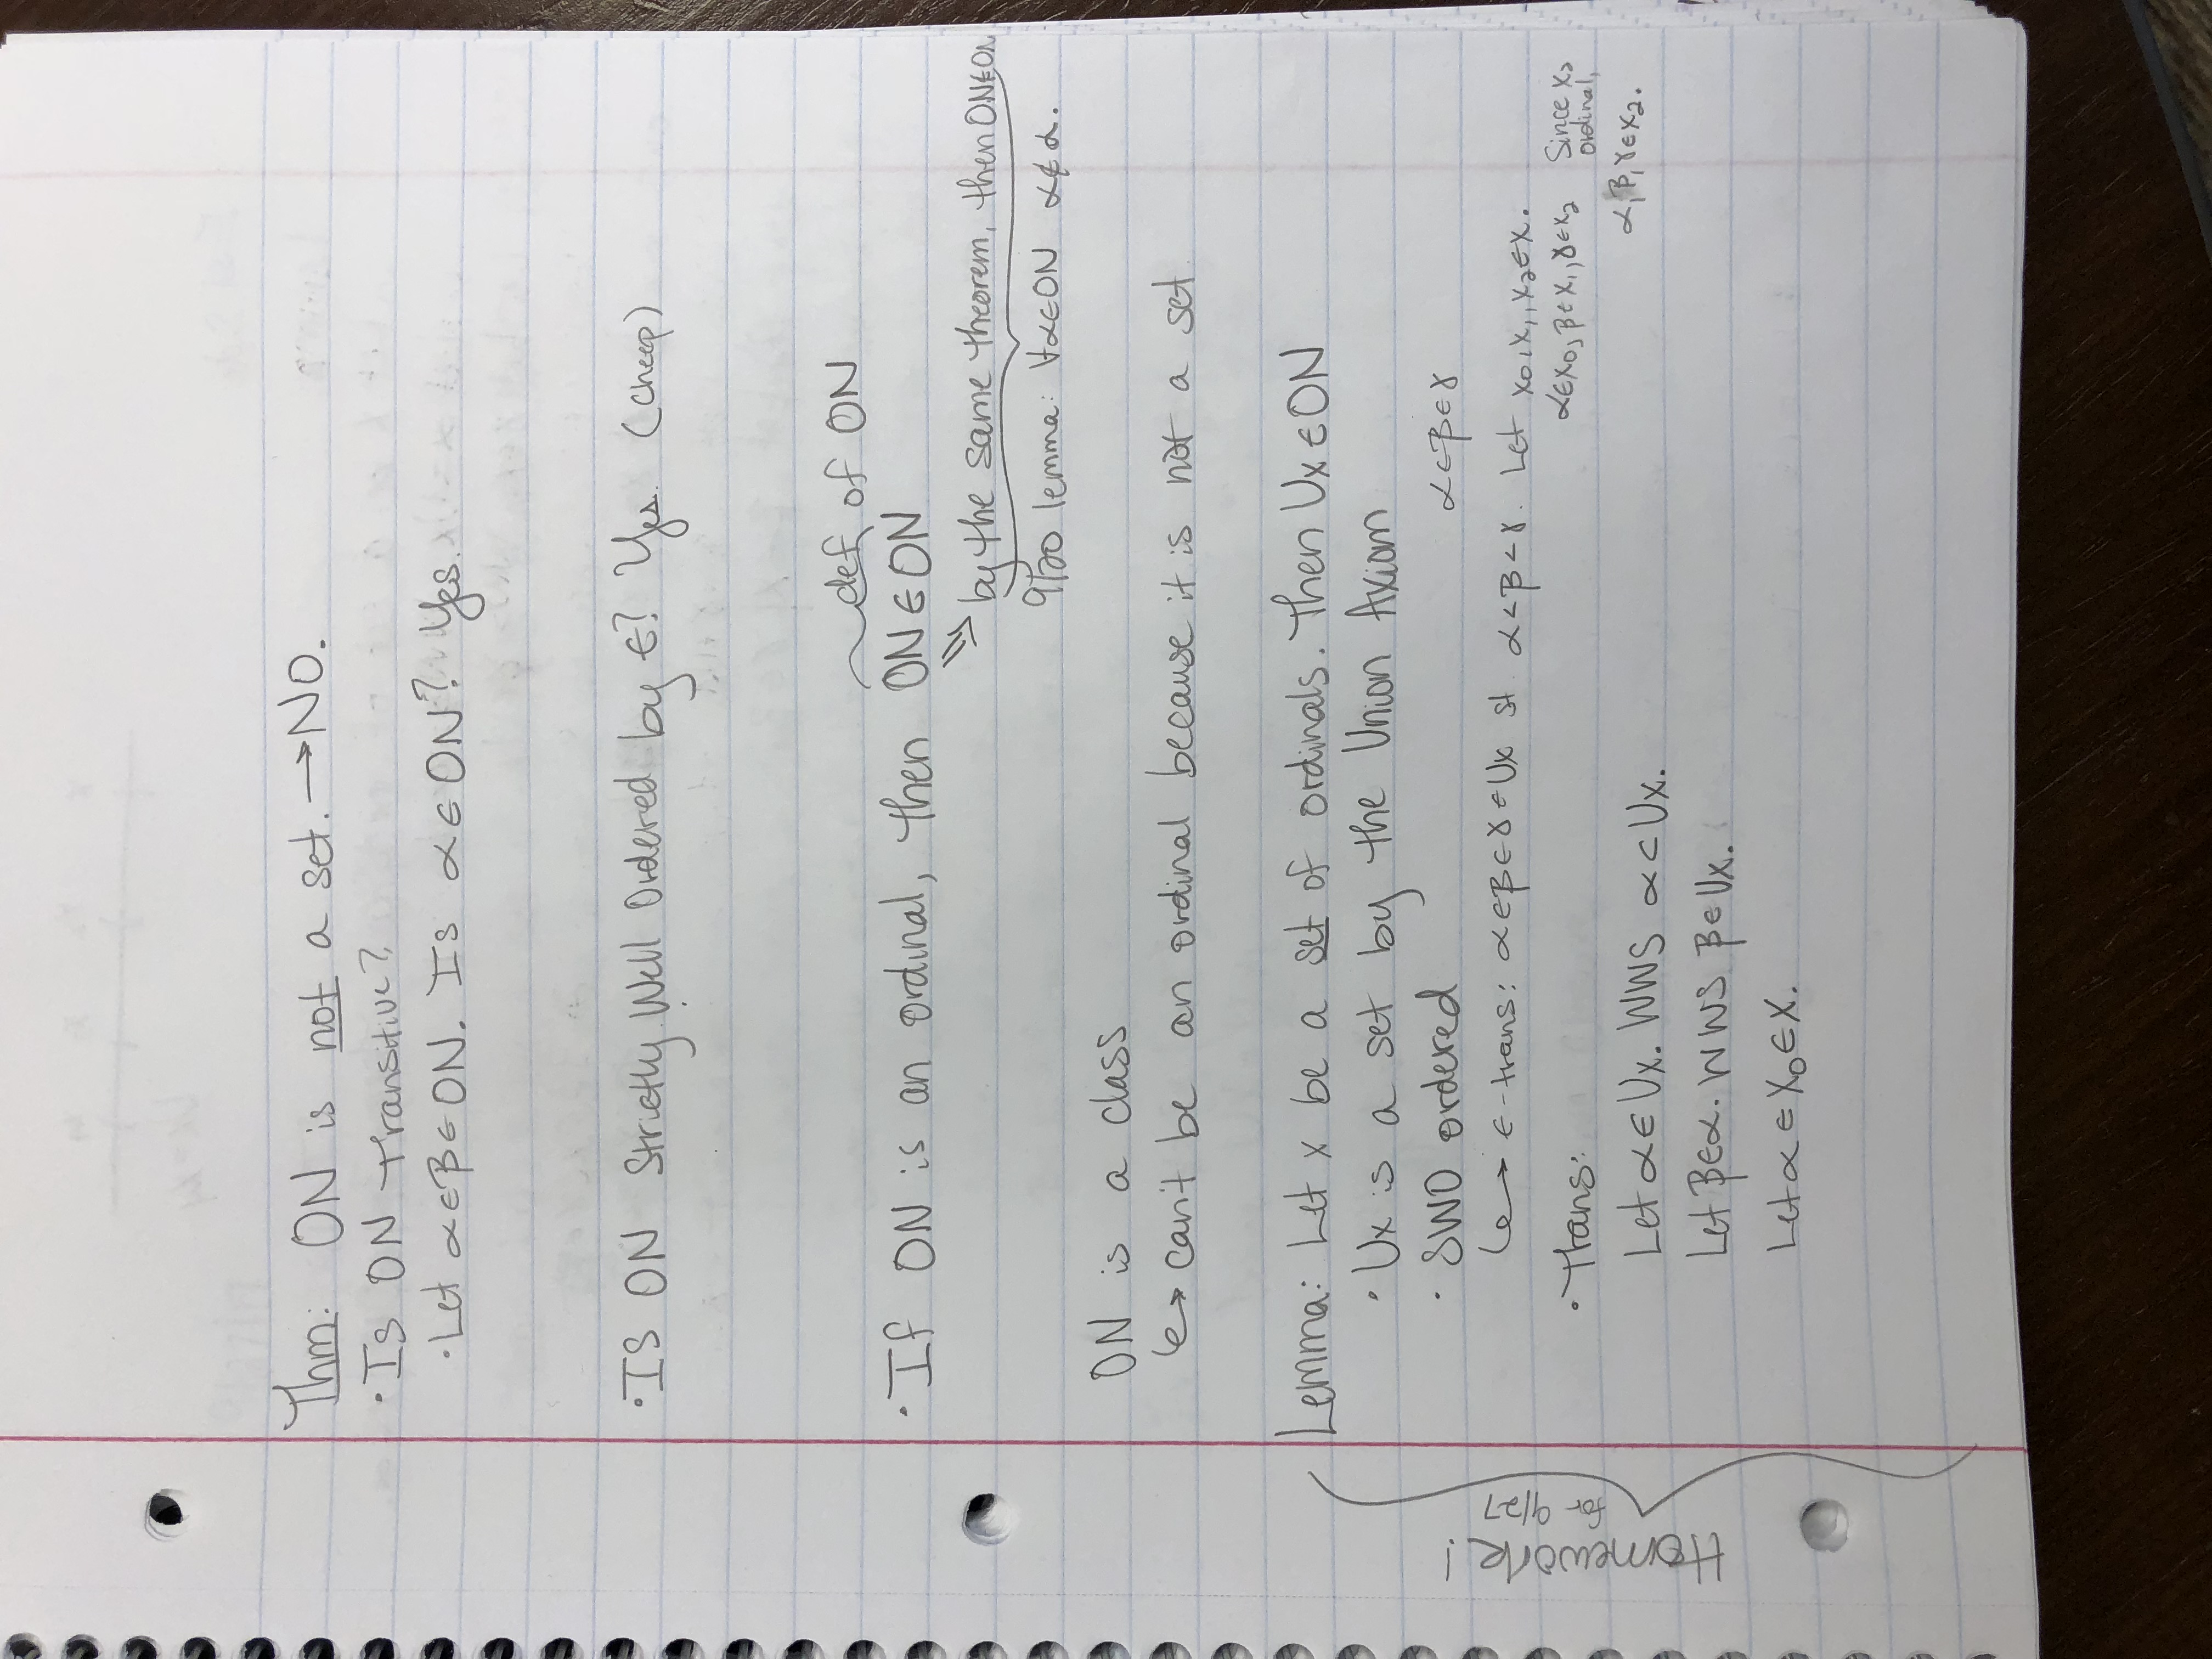 Thm: ON is not a set. → NO.
· Is ON transitive?
· Let α∈β∈ON. Is α∈ON? Yes.
· IS ON Strictly Well Ordered by ∈? Yes. (cheep)
def of ON
· If ON is an ordinal, then ON∈ON
⇒ by the same theorem, then ON∉ON
9/20 lemma: ∀α∈ON α∉α.
ON is a class
↳ can't be an ordinal because it is not a set
Lemma: Let x be a set of ordinals. Then ∪x∈ON
· ∪x is a set by the Union Axiom
· SWO ordered α∈β∈γ
↳ ∈-trans: α∈β∈γ∈∪x st α<β<γ. Let x₀,x₁,x₂∈x.
α∈x₀, β∈x₁, γ∈x₂ Since x₂
ordinal,
· Trans:
α, β, γ∈x₂.
Let α∈∪x. WWS α⊂∪x.
Let β∈α. WWS β∈∪x.
Let α∈x₀∈x.
Homework!
for 9/27